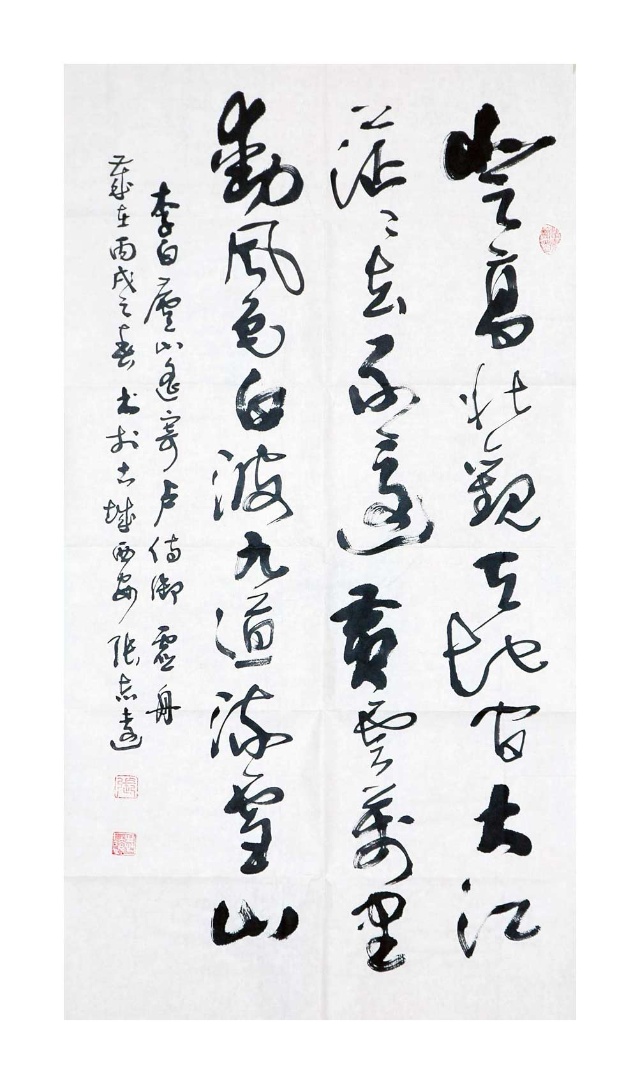 登高壮觀天地间大江
茫茫去不還黄雲萬里
動風色白波九道流雪山
李白廬山遙寄卢侍御虚舟
歲在丙戌之春书於古城西安张志遠